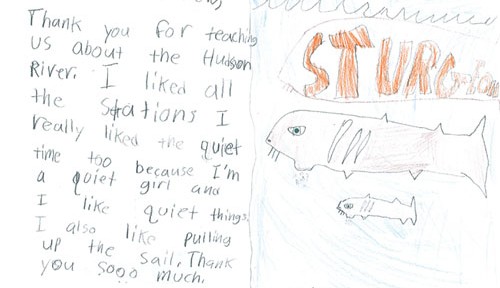 Thank you for teaching
us about the Hudson
River. I liked all
the stations I
really liked the quiet
time too because I'm
a quiet girl and
I like quiet things.
I also like pulling
up the sail. Thank
you sooo much.
STURGEON